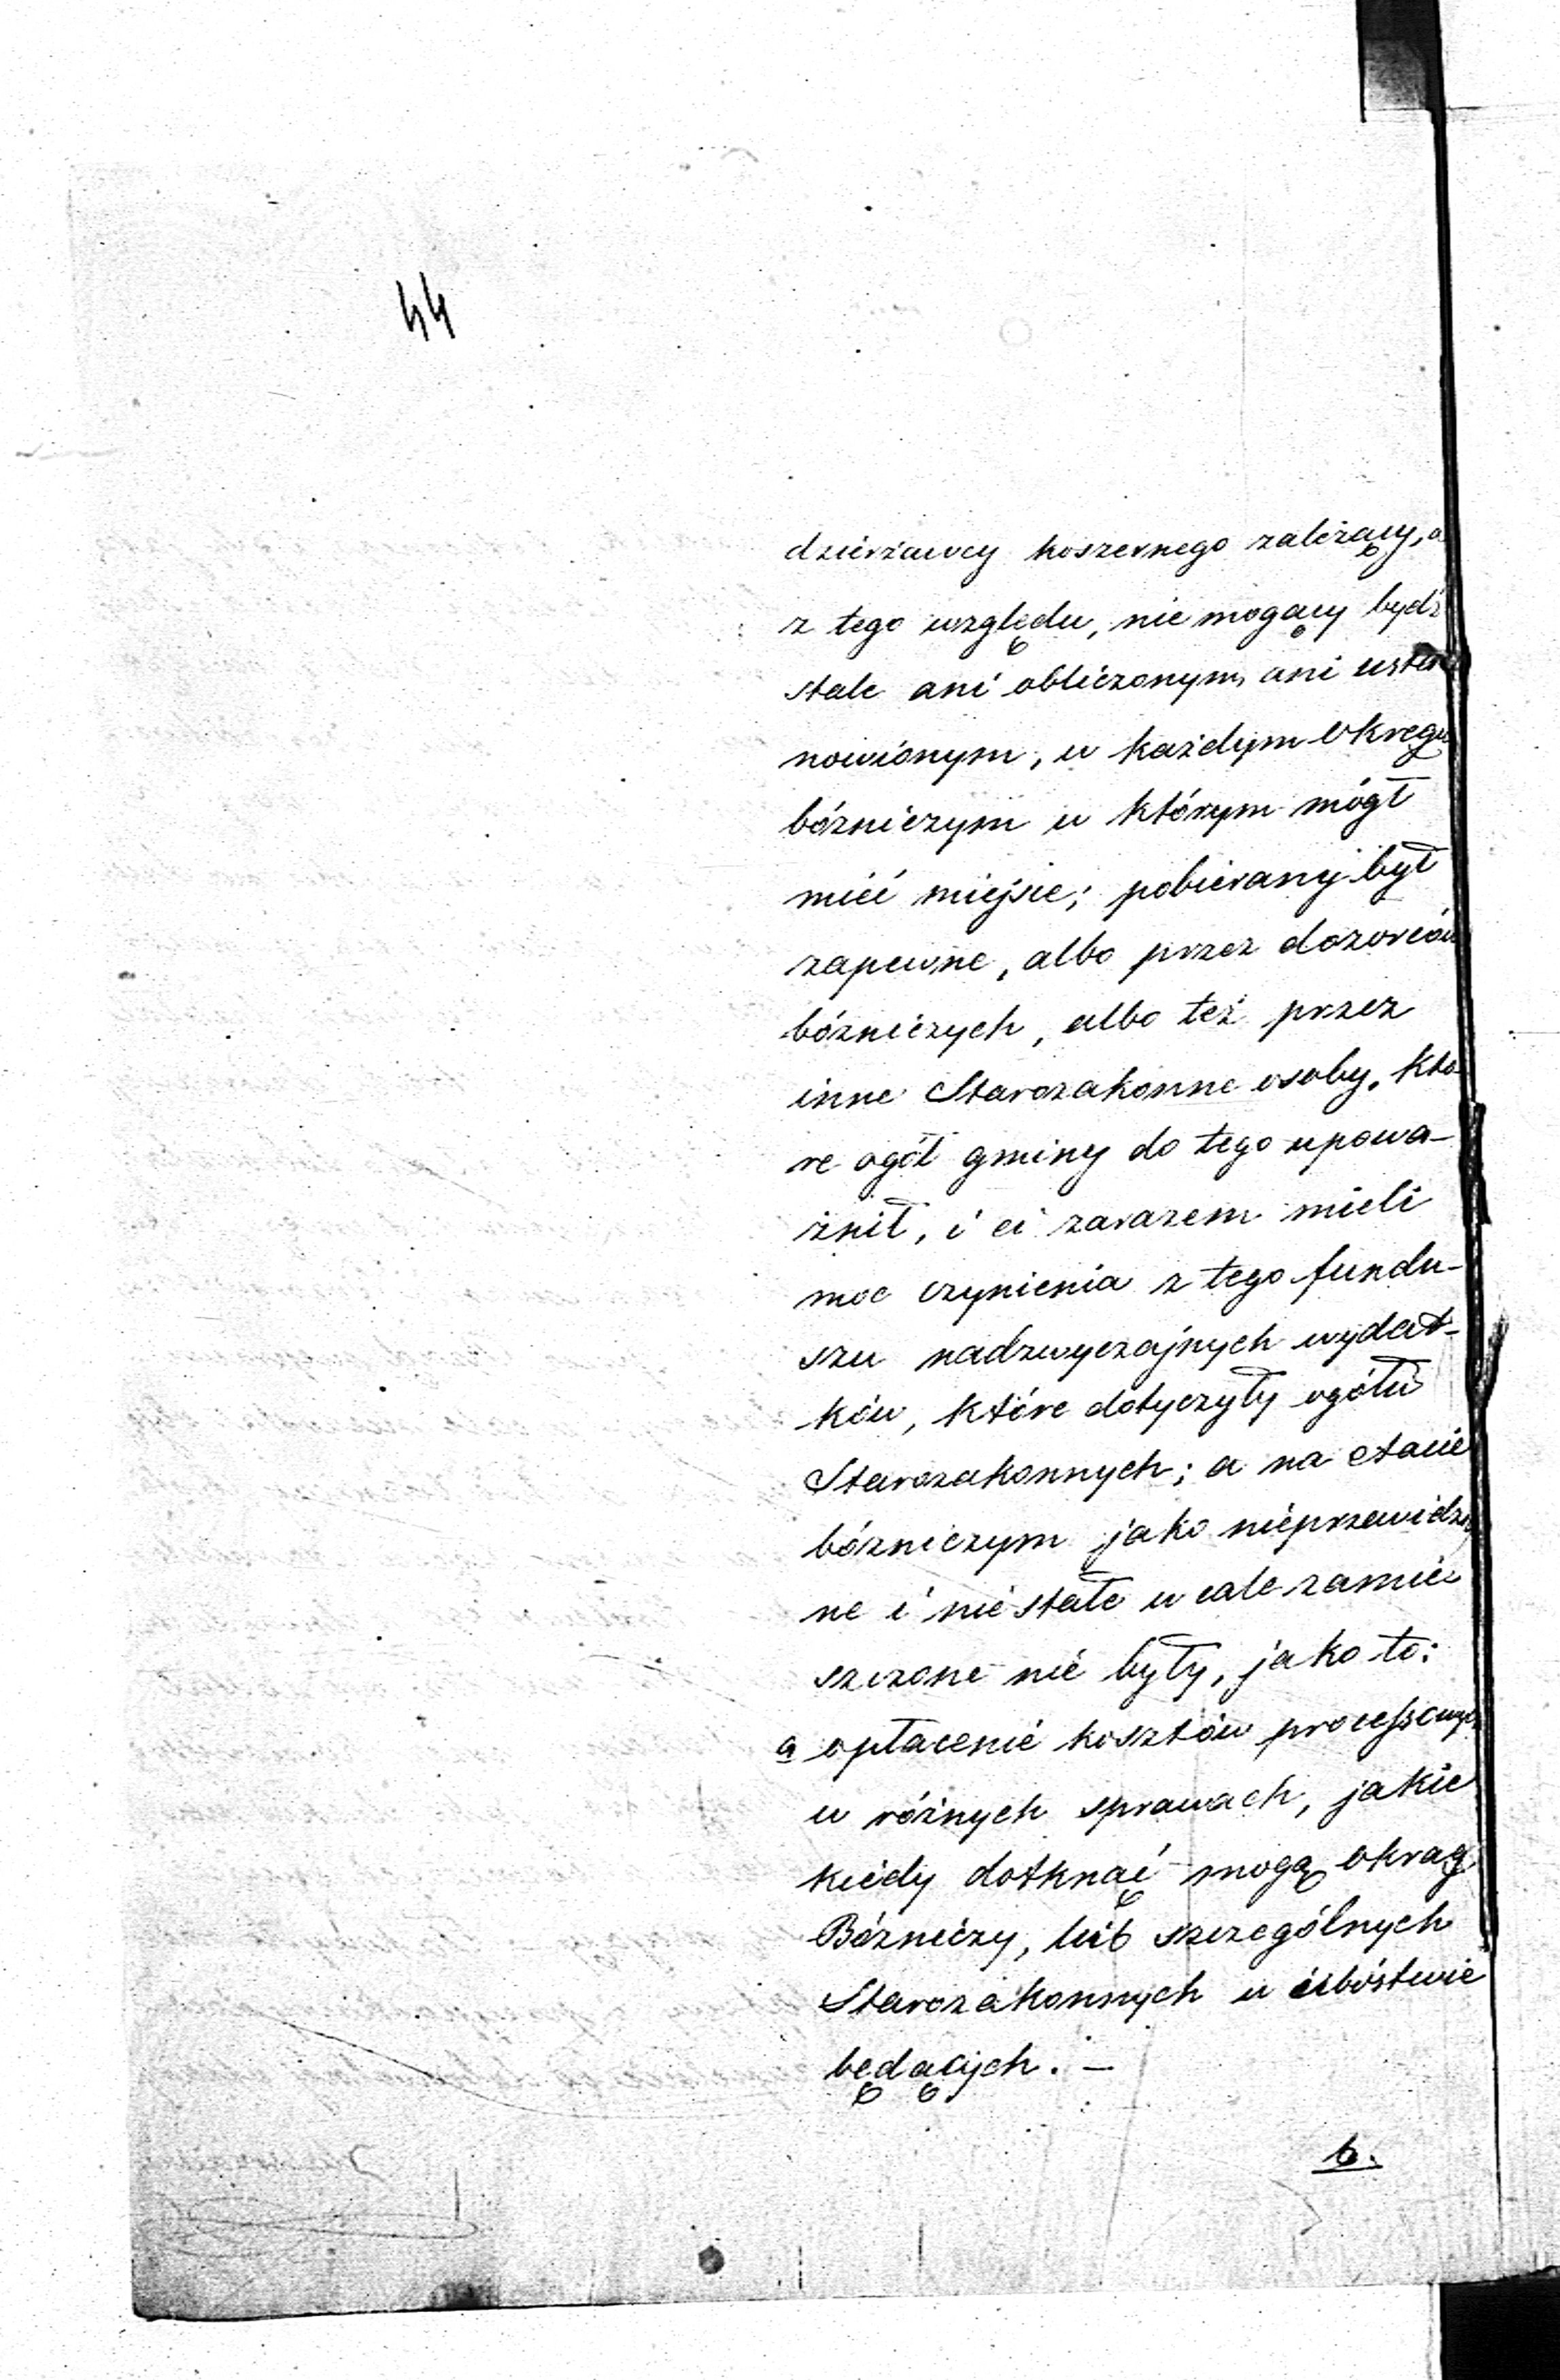 44
dzierżawcy koszernego zależący, a
z tego względu, nie mogący bydź
stale ani obliczonym, ani usta
nowionym, w każdym Okręgu
bóżniczym w którym mógł
mieć miejsce; pobierany był
zapewne, albo przez dozorców
bóżniczych, albo też przez
inne Starozakonne osoby, któ
re ogół gminy do tego upowa-
żnił, i ci zarazem mieli
moc czynienia z tego fundu-
szu nadzwyczajnych wydat-
ków, które dotyczyły ogółu
Starozakonnych; a na etacie
bóżniczym jako nieprzewidzia
ne i nie stałe wcale zamie
szczone nie były, jako to:
a opłacenie kosztów processowych
w różnych sprawach, jakie
kiedy dotknąć mogą okrąg
Bóżniczy, lub szczególnych
Starozakonnych w ubóstwie
będących. —
b.